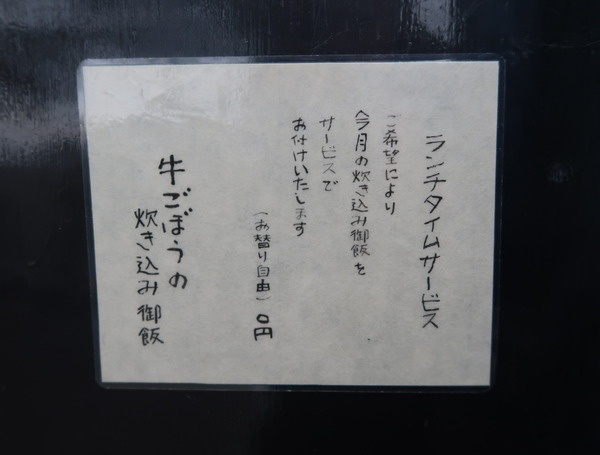 ランチタイムサービス
ご希望により
今月の炊き込み御飯を
サービスで
お付けいたします
(お替り自由) 0円
牛ごぼうの
炊き込み御飯